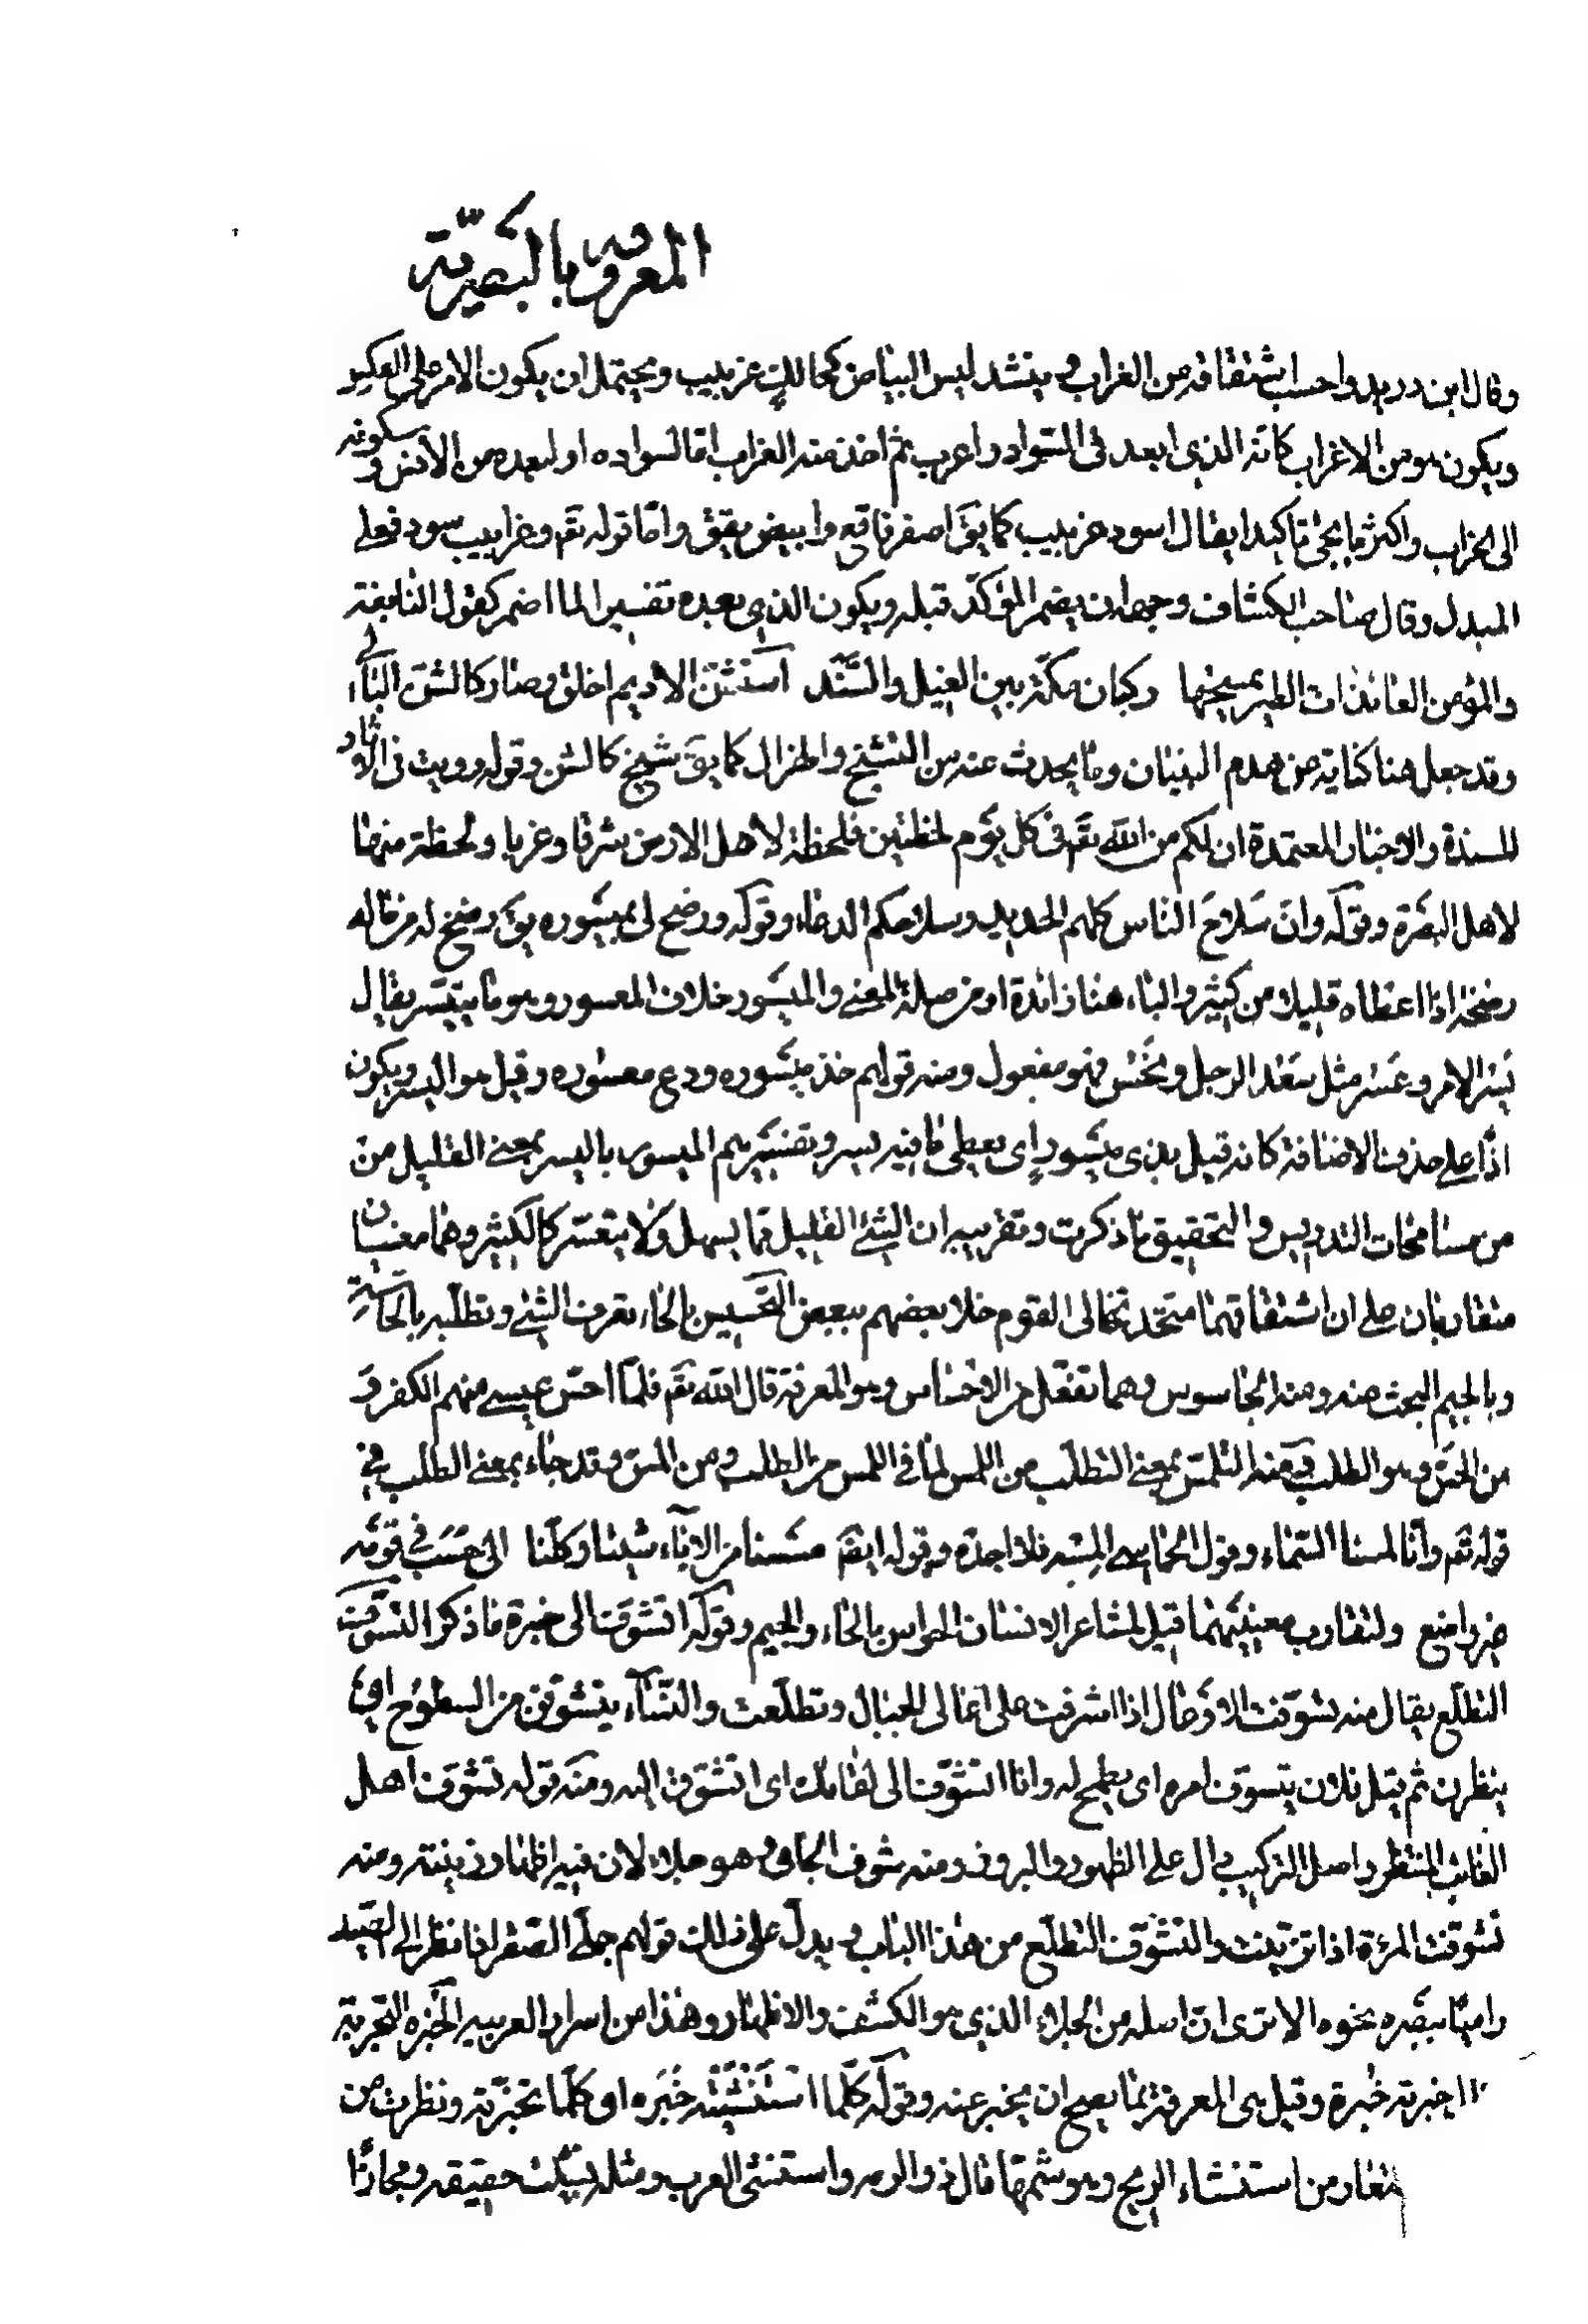 المعروفة بالبصريّة
وقال ابن دريد واحسب اشتقاقه من الغراب وينشد ليس البياض كحالك غربيب ويحتمل ان يكون الامر على العكس
ويكون هو من الاغراب كانه الذي ابعد في السواد واغرب ثم اخذ منه الغراب امّا لسواده او لبعده من الانس وسكونه
الى الخراب واكثر ما يجئ تاكيدا يقال اسود غربيب كما يقَ اصفر فاقع وابيض يقق وامّا قوله تعَم وغرابيب سود فعلى
البدل وقال صاحب الكشاف وجهه ان يضمر المؤكّد قبله ويكون الذي بعده تفسيرا لما اضمر كقول النابغة
والمؤمن العائذات الطير يمسحها ركبان مكّة بين الغيل والسَّنَد استشنّ الاديم اخلق وصار كالشنّ البالي
وقد جعل هنا كناية عن هدم البنيان وما يحدث عنه من التشنج والهزال كما يقَ شيخ كالشن وقوله ورويت في الآثار
المسندة والاخبار المعتمدة ان لكم من الله تعَم في كل يوم لحظتين فلحظة لاهل الارض شرقا وغربا ولحظة منها
لاهل البصرة وقوله وان سلاحَ الناس كلهم الحديد وسلاحكم الدعاء وقوله ورضخ لي بميسوره يقَ رضخ له من ماله
رضخة اذا اعطاه قليلا من كثير والباء هنا زائدة او من صلة المعنى والميسور خلاف المعسور وهو ما يتيسّر يقال
يَسُرَ الامر وعَسُرَ مثل سَعُد الرجل ونَحُس فهو مفعول ومنه قولهم خذ ميسوره ودع معسوره وقيل هو اليسر ويكون
اذًا على حذف الاضافة كانه قيل بذى ميسورٍ اى يعطى ما فيه يسر وتفسيرهم الميسور باليسر بمعنى القليل من
من مسامحات التدريس والتحقيق ما ذكرت وتقريبه ان الشئ القليل مما يسهل ولا يتعسّر كالكثير وهما معنيان
متقاربان على ان اشتقاقهما متحد تخالى القوم خلا بعضهم ببعض التحسس بالحاء تعرف الشئ وتطلّبه بالحاسّة
وبالجيم البحث عنه ومنه الجاسوس وهما تفعّل من الاحساس وهو المعرفة قال الله تعَم فلمّا احسّ عيسى منهم الكفر و
من الجسّ وهو الطلب ومنه التلمّس بمعنى التطلّب من اللمس لما في اللمس من الطلب ومن المسّ وقد جاء بمعنى الطلب في
قوله تعَم وانّا لمسنا السّماء وقول الحماسى المسه فلا اجده وقوله ايضَم مسسنا من الاباء شيئا وكلّنا الى حسب في قومه
غير واضع ولتقارب معنييهما قيل لمشاعر الانسان الحواس بالحاء والجيم وقوله اتشوّف الى خبرة ما ذكر التشوّف
التطلّع يقال منه تشوّفت الاوعال اذا اشرفت على اعالى الجبال وتطلّعت والنساء يتشوّفن من السطوح اى
ينظرن ثم قيل فلان يتشوّف لامره اى يطمح له وانا اتشوّف الى لقائك اى اتشوّق اليه ومنه قوله تشوّف اهل
الغائب المنتظر واصل التركيب دال على الظهور والبروز ومنه شوف الحلى وهو جلاء لان فيه اظهار زينته ومنه
تشوّفت المرءة اذا تزيّنت والتشوّف التطلّع من هذا الباب ويدلّ على ذلك قولهم جلّى الصقر اذا نظر الى الصيد
راميًا ببصره نحوه الا ترى انّ اصله من الجلاء الذي هو الكشف والاظهار وهذا من اسرار العربيه الخبره التجربة
اخبرته خُبرة وقيل هى المعرفة بما يصح ان يخبر عنه وقوله كلّما استَنْشَيْتُه خَبَره اى كلّما تخبّرته ونظرت من
من استنشاء الريح وهو شمّها قال ذو الرمه واستنشى الغرب ومثله حقيقه ومجازًا